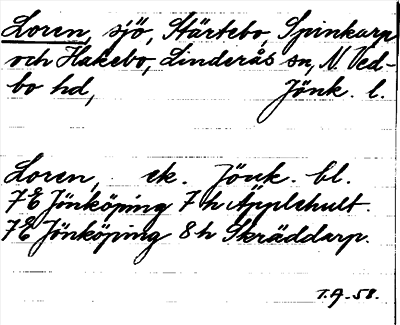 Loren, sjö, Stärtebo, Spinkarp
och Hakebo, Linderås sn, N Ved-
bo hd, Jönk. l.
Loren, ek. Jönk. bl.
7E Jönköping 7 h Äpplehult.
7E Jönköping 8 h Skräddarp.
T.A. 58.